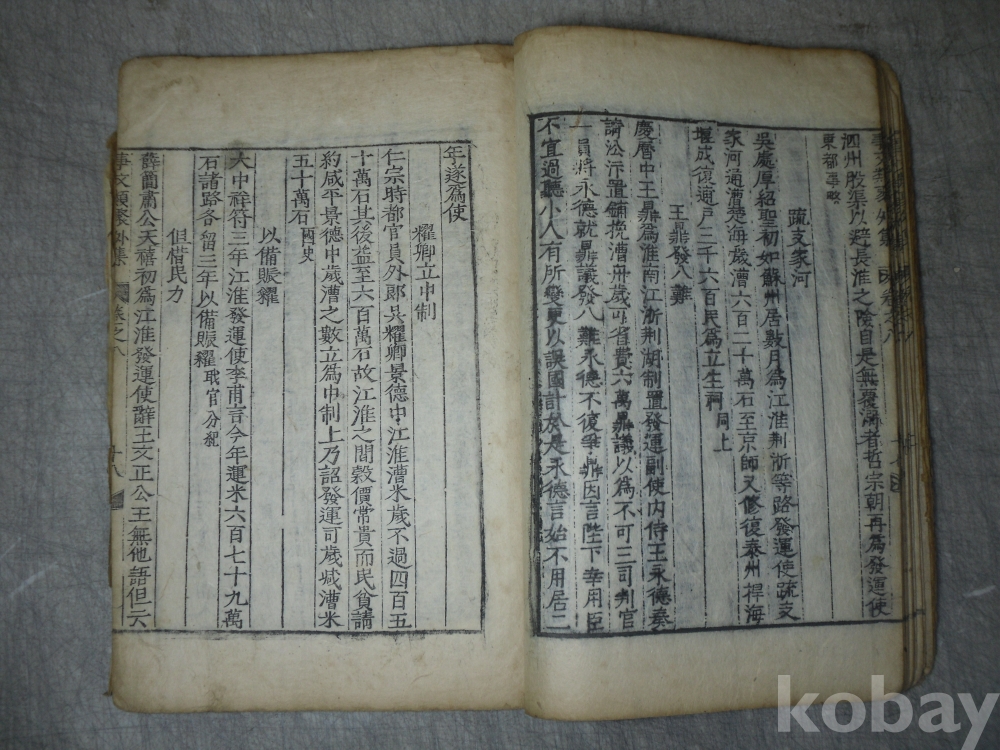 泗州股渠以避長淮之險自是無覆溺者哲宗朝再爲發運使
東都事略
疏支家河
吳處厚紹聖初如蘇州居數月爲江淮荆浙等路發運使疏支
家河通漕楚海歲漕六百二十萬石至京師又修復泰州捍海
堰成復逋戶二千六百民爲立生祠同上
王鼎發八難
慶曆中王鼎爲淮南江浙荆湖制置發運副使内侍王永德奏
請沿汴置鋪挽漕舟歲可省費六萬鼎議以爲不可三司判官
一員將永德就鼎議發八難永德不復爭鼎因言陛下幸用臣
不宜過聽小人有所變更以誤國計於是永德言始不用居二
年遂爲使
耀卿立中制
仁宗時都官員外郎吳耀卿景德中江淮漕米歲不過四百五
十萬石其後益至六百萬石故江淮之間穀價常貴而民貧請
約咸平景德中歲漕之數立爲中制上乃詔發運司歲減漕米
五十萬石國史
以備賑糶
大中祥符三年江淮發運使李甫言今年運米六百七十九萬
石諸路各留三年以備賑糶職官分紀
但惜民力
薛簡肅公天禧初爲江淮發運使辭王文正公王無他語但云
事文類聚外集 卷之八 十八
kobay